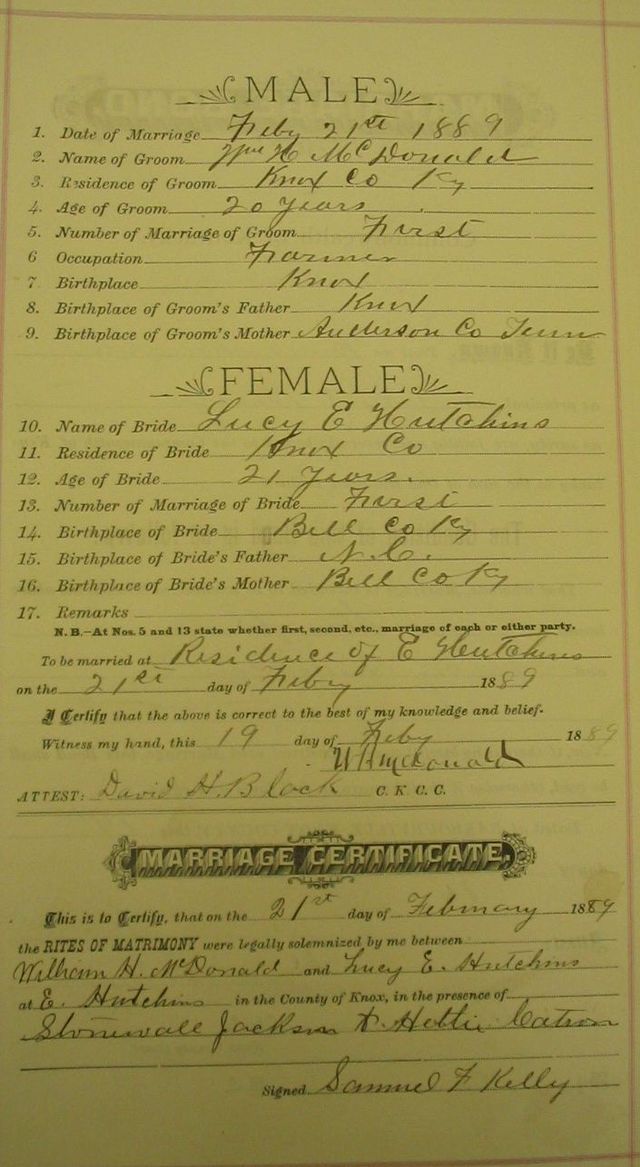 MALE
1. Date of Marriage Feby 21st 1889
2. Name of Groom Wm H McDonald
3. Residence of Groom Knox Co Ky
4. Age of Groom 20 years
5. Number of Marriage of Groom First
6 Occupation Farmer
7 Birthplace Knox
8. Birthplace of Groom's Father Knox
9. Birthplace of Groom's Mother Anderson Co Tenn
FEMALE
10. Name of Bride Lucy E Hutchins
11. Residence of Bride Knox Co
12. Age of Bride 21 Years.
13. Number of Marriage of Bride First
14. Birthplace of Bride Bell Co Ky
15. Birthplace of Bride's Father N.C.
16. Birthplace of Bride's Mother Bell Co Ky
17. Remarks
N. B.—At Nos. 5 and 13 state whether first, second, etc., marriage of each or either party.
To be married at Residence of E Hutchins
on the 21st day of Feby 1889
I Certify that the above is correct to the best of my knowledge and belief.
Witness my hand, this 19 day of Feby 1889
W H McDonald
ATTEST: David H. Black C. K. C. C.
MARRIAGE CERTIFICATE.
This is to Certify, that on the 21st day of February 1889
the RITES OF MATRIMONY were legally solemnized by me between
William H. McDonald and Lucy E. Hutchins
at E. Hutchins in the County of Knox, in the presence of
Stonewall Jackson & Hettie Catron
Signed Samuel F Kelly